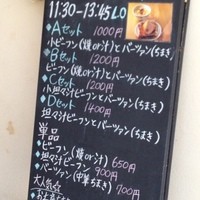 11:30-13:45 LO
◆Aセット 1000円
小ビーフン(焼or汁)とバーツァン(ちまき)
◆Bセット 1200円
ビーフン(焼or汁)とバーツァン(ちまき)
◆Cセット 1200円
小担々汁ビーフンとバーツァン(ちまき)
◆Dセット 1400円
担々汁ビーフンとバーツァン(ちまき)
単品
◆ビーフン(焼or汁) 650円
◆担々汁ビーフン 900円
◆バーツァン(中華ちまき) 700円
大人気☆